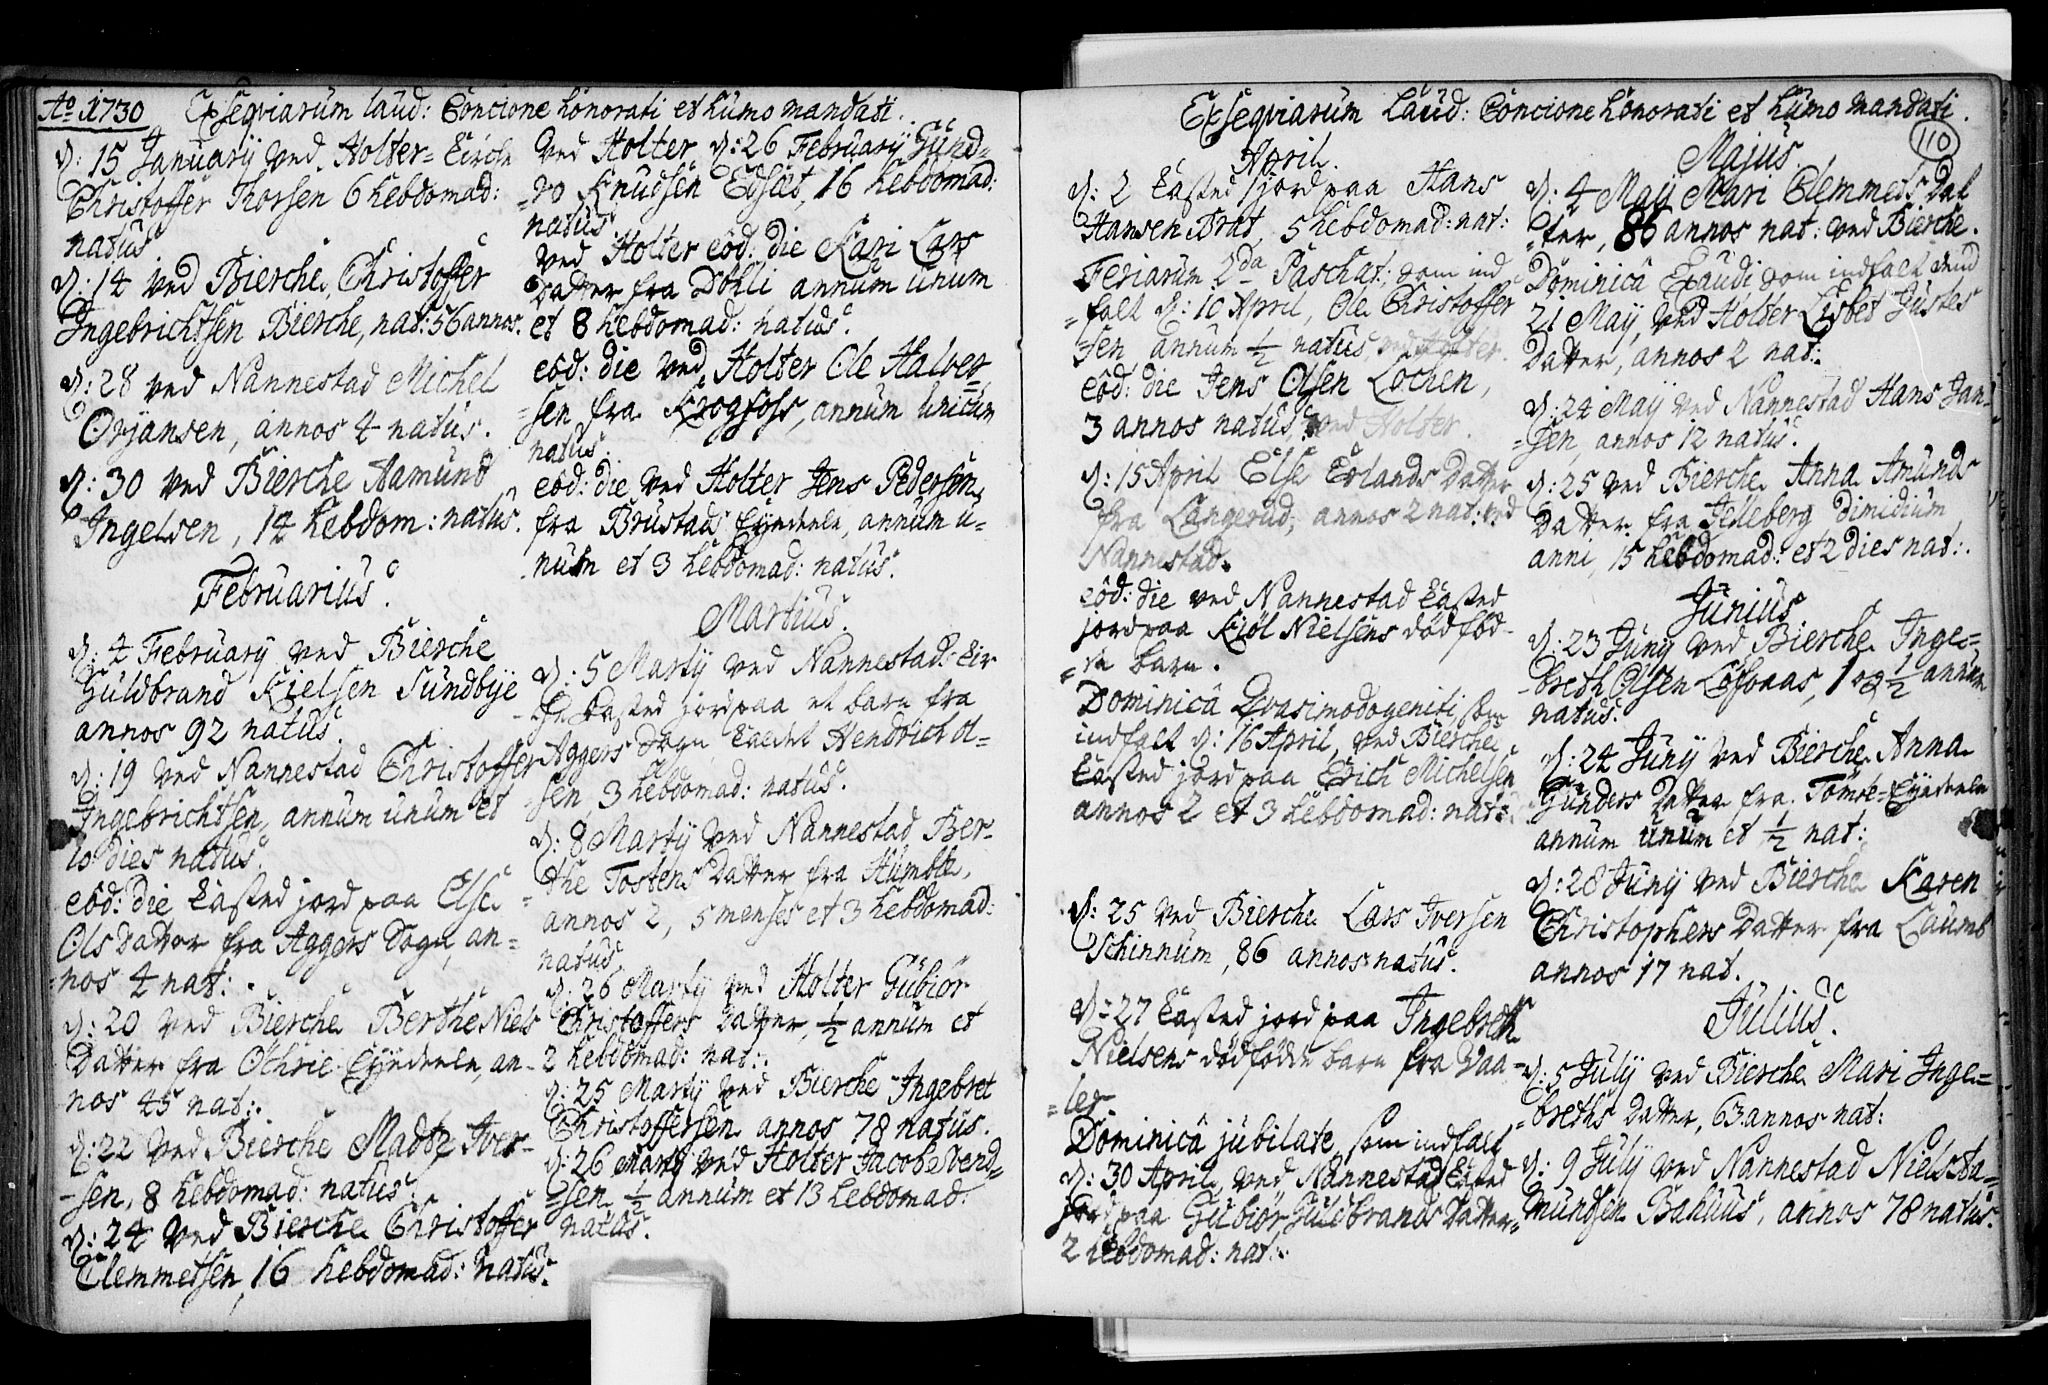 Ao 1730 Exseqviarum laud: Concione honorati et humo mandati.
d: 15 January ved Holter-Kirche
Christoffer Thorsen 6 hebdomad:
natus.
d: 14 ved Bierche, Christoffer
Ingebrichtsen Bierche, nat: 56 annos.
d: 28 ved Nannestad Michel
Orjansen, annos 4 natus.
d: 30 ved Bierche Aamund
Ingelsen, 14 hebdom: natus.
Februarius.
d: 4 February ved Bierche
Guldbrand Kielsen Sundbye
annos 92 natus.
d: 19 ved Nannestad Christoffer
Ingebrichtsen, annum unum et
10 dies natus.
eod: die Kasted jord paa Else
Ols Datter fra Aggers Sogn, an-
nos 4 nat:.
d: 20 ved Bierche Berthe Niels
Datter fra Ochrie Eyendeele, an-
nos 45 nat:.
d: 22 ved Bierche Madtz Iver-
sen, 8 hebdomad: natus.
d: 24 ved Bierche Christoffer
Clemmetsen, 16 hebdomad: natus.
ved Holter d: 26 February Gund-
Knudsen 16 hebdomad:
natus.
ved Holter eod: die Kari Lars
Datter fra Dohli annum unum
et 8 hebdomad: natus.
eod: die ved Holter Ole Halver-
sen fra Krogfoss, annum unicum
natus.
eod: die ved Holter Jens Pedersen
fra Brustads Eyendeele, annum u-
num et 3 hebdomad: natus.
Martius.
d: 5 Marty ved Nannestad Kir-
Kasted jord paa et barn fra
Aggers Sogn Hendrich Ol-
sen, 3 hebdomad: natus.
d: 8 Marty ved Nannestad Ber-
the Tostens Datter fra Humble,
annos 2, 5 menses et 3 hebdomad:
natus.
d: 26 Marty ved Holter Gubiör
Christoffers Datter, ½ annum et
2 hebdomad: nat:.
d: 25 Marty ved Bierche Ingebret
Christoffersen annos 78 natus.
d: 26 Marty ved Holter Jacob Svend-
sen ½ annum et 13 hebdomad:
natus.
Exseqviarum laud: Concione honorati et humo mandati.
110
April.
d: 2 Kasted jord paa Hans
Hansen Brat, 5 hebdomad: nat:
Feriarum 2da Paschat: som ind-
falt d: 10 April, Ole Christoffer-
sen, annum ½ natus, ved Holter.
eod: die Jens Olsen Lochen,
3 annos natus, ved Holter.
d: 15 April Else Erlands Datter
fra Langerud, annos 2 nat: ved
Nannestad.
eod: die ved Nannestad Kasted
jord paa Kiøl Nielsens dödföd-
te barn.
Dominicâ Qvasimodogeniti, som
indfalt d: 16 April, ved Bierche
Kasted jord paa Erich Michelsen
annos 2 et 3 hebdomad: nat:
d: 25 ved Bierche Lars Iversen
Schinnum, 86 annos natus.
d: 27 Kasted jord paa Ingebreth
Nielsens dödfödde barn fra Vaa-
ler
Dominicâ jubilate, som indfalt
d: 30 April, ved Nannestad Kasted
jord paa Gubior Guldbrands Datter
2 hebdomad: nat:.
Majus.
d: 4 Maij Mari Clemmeds Dat-
ter, 86 annos nat: ved Bierche.
Dominicâ Exaudi som indfalt dend
21 Maij, ved Holter Lisbet Justes
Datter, annos 2 nat:.
d: 24 Maij ved Nannestad Hans Jan-
sen, annos 12 natus.
d: 25 ved Bierche Anna Amunds
Datter fra Jelleberg dimidium
anni, 15 hebdomad: et 2 dies nat:.
Junius.
d: 23 Juny ved Bierche Inge-
breth Olsen Løfonaas, 1 og ½ annum
natus.
d: 24 Juny ved Bierche Anna
Gunders Datter fra Tomte-Eyendeele
annum unum et ½ nat:
d: 28 Juny ved Bierche Karen
Christophers Datter fra Laumb
annos 17 nat.
Julius.
d: 5 July ved Bierche Mari Inge-
breths Datter, 63 annos nat:
d: 9 July ved Nannestad Niels Aa-
mundsen Bahuus, annos 78 natus.